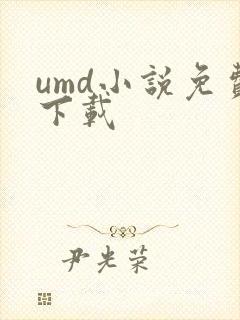 umd小說免費
下載
尹光荣